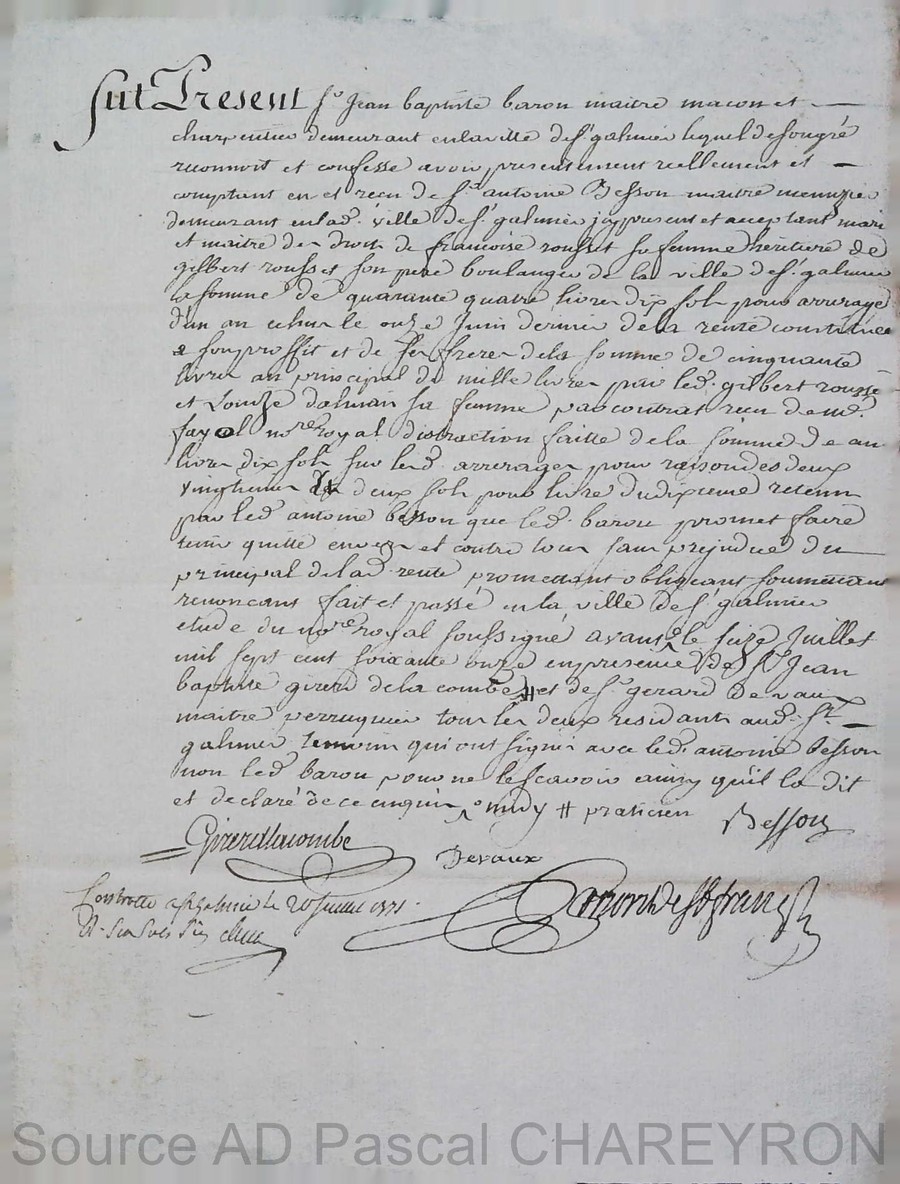 fut Present Sr. Jean baptiste baron maitre macon et
charpentier demeurant en la ville de st. galmier lequel de son gré
reconnoit et confesse avoir presentement reellement et
comptant eu et recu de Sr. antoine Besson maitre menuzier
demeurant en lad. ville de st. galmier icy present et acceptant mari
et maitre des droits de francoise rousset sa femme heritiere de
gilbert rousset son pere boulanger de la ville de st. galmier
la somme de quarante quatre livres dix sols pour arrerages
d'un an echu le onze Juin dernier de la rente constituee
a son proffit et de ses freres de la somme de cinquante
livres au principal de mille livres par led. gilbert rousset
et Louize dalmais sa femme par contrat recu de me.
fayol nore. royal distraction faitte de la somme de
livres dix sols sur lesd. arrerages pour raison des deux
vingtiemes et deux sols pour livre du dixieme retenu
par led. antoine besson que led. barou promet faire
tenir quitte envers et contre tous sans prejudice du
principal de lad. rente promettant obligeant soumettant
renoncant fait et passé en la ville de st. galmier
etude du nore. royal soussigné avant le seize Juillet
mil sept cent soixante onze en presence de Sr. Jean
baptiste girerd de la combe # et de Sr. gerard de vaux
maitre perruquier tous les deux residants aud. St.
galmier temoins qui ont signé avec led. antoine Besson
non led. barou pour ne le scavoir ainsy qu'il la dit
et declaré de ce enquis midy # praticien Besson
Girerdlacombe
Devaux
Controlle a st galmier le 20 Juillet 1771.